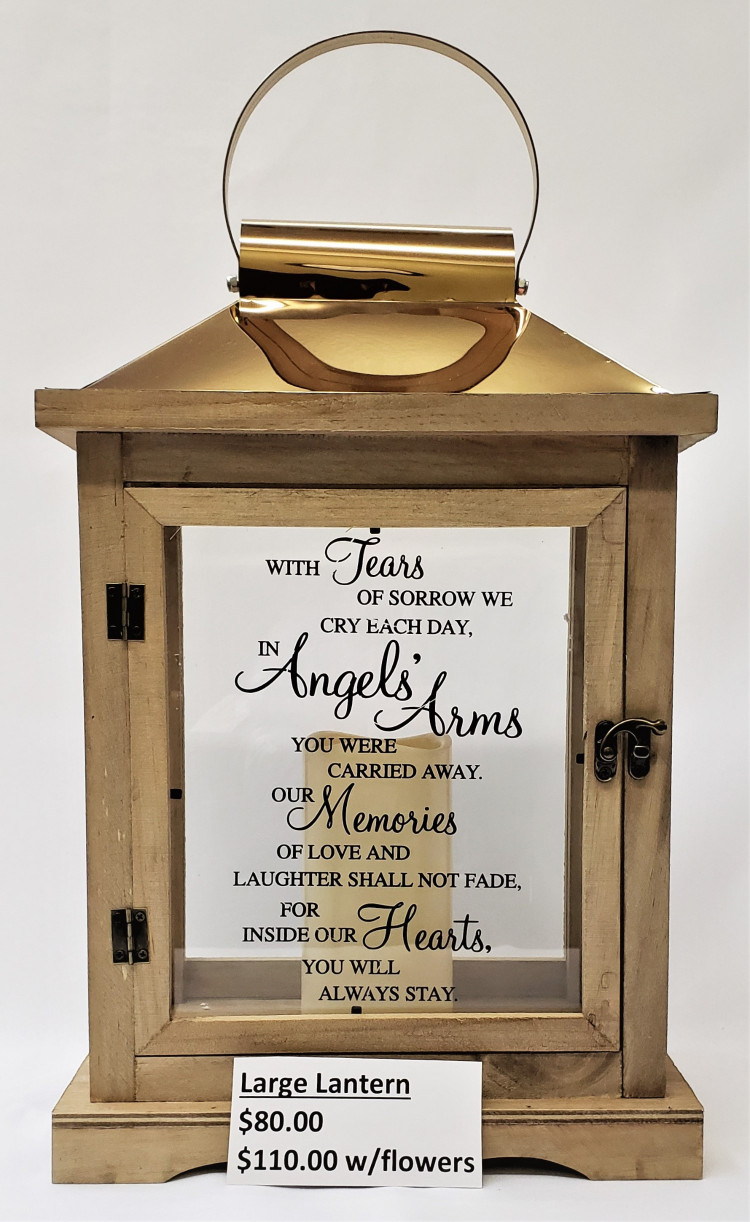 WITH Tears
OF SORROW WE
CRY EACH DAY,
IN Angels'
Arms
YOU WERE
CARRIED AWAY.
OUR Memories
OF LOVE AND
LAUGHTER SHALL NOT FADE,
FOR
INSIDE OUR Hearts,
YOU WILL
ALWAYS STAY.
Large Lantern
$80.00
$110.00 w/flowers